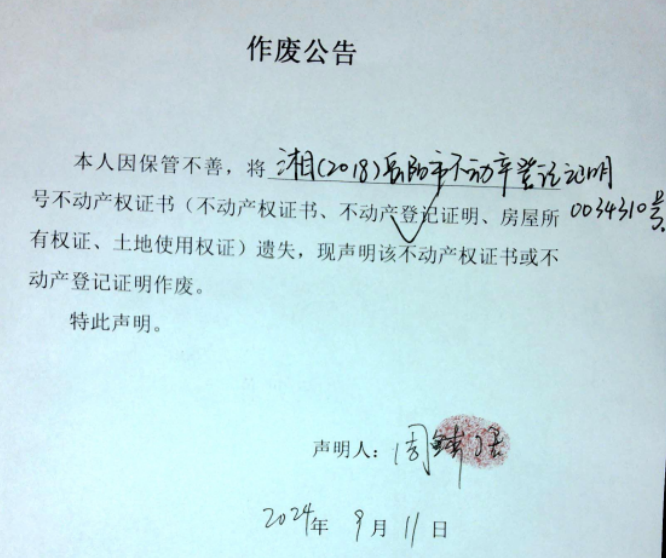 作废公告
本人因保管不善，将 湘(2018)岳阳市不动产登记证明
号不动产权证书（不动产权证书、不动产登记证明、房屋所 0034310号
有权证、土地使用权证）遗失，现声明该不动产权证书或不
动产登记证明作废。
特此声明。
声明人：周
2024年 9月 11日